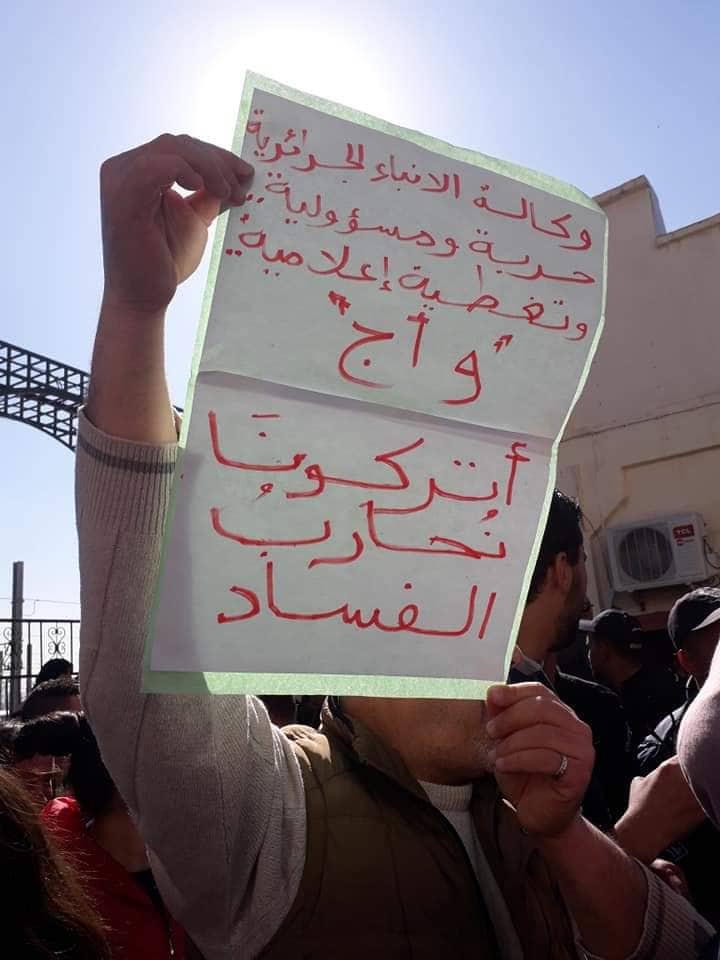 وكالة الانباء الجزائرية
حرية ومسؤولية..
وتغطية إعلامية..
"وأج"
أتركونَا
نُحاربُ
الفساد
TCL